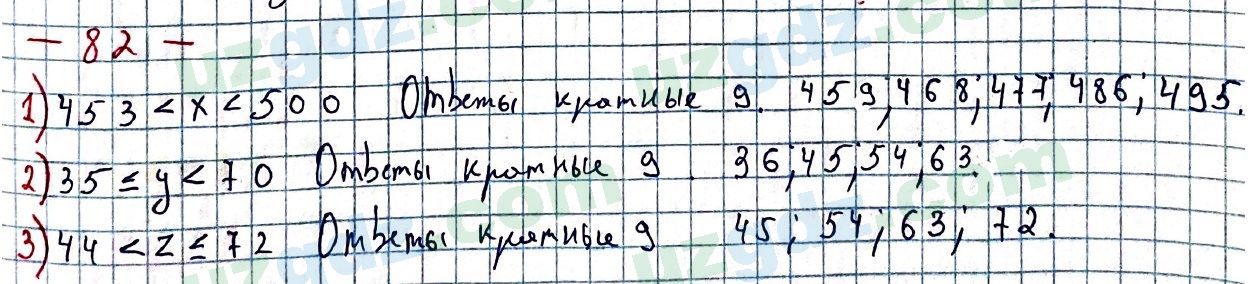 - 82 -
1) 453 < x < 500 Ответы кратные 9. 459; 468; 477; 486; 495.
2) 35 ≤ y < 70 Ответы кратные 9. 36; 45; 54; 63.
3) 44 < z ≤ 72 Ответы кратные 9 45; 54; 63; 72.